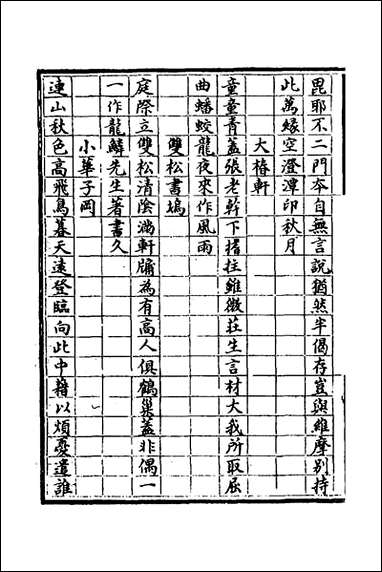 毘耶不二門本自無言說猶然半偈存豈與維摩別持
此萬緣空澄潭印秋月
大椿軒
童童青蓋張老幹下撐拄雖微莊生言材大我所取屈
曲蟠蛟龍夜來作風雨
雙松書塢
庭際立雙松清陰滿軒牖為有高人俱鶴巢蓋非偶一
一作龍鱗先生著書久
小華子岡
連山秋色高飛鳥暮天遠登臨向此中藉以煩憂遣誰